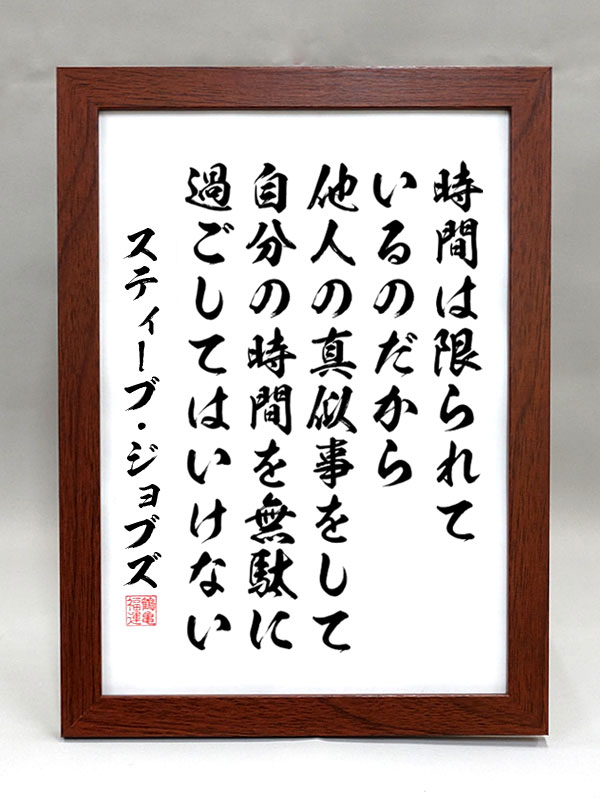 時間は限られて
いるのだから
他人の真似事をして
自分の時間を無駄に
過ごしてはいけない
スティーブ・ジョブズ
鶴亀
福運